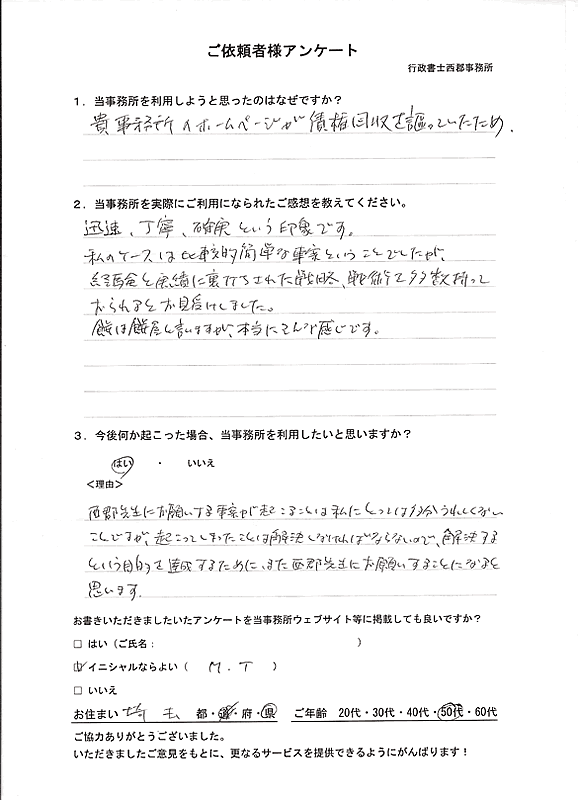 ご依頼者様アンケート
行政書士西郡事務所
1．当事務所を利用しようと思ったのはなぜですか？
貴事務所のホームページが債権回収を謳っていたため．
2．当事務所を実際にご利用になられたご感想を教えてください。
迅速、丁寧、確実という印象です。
私のケースは比較的簡単な事案ということでしたが、
経験と実績に裏打ちされた戦略、戦術を多数持って
おられるとお見受けしました。
餅は餅屋と言いますが、本当にそんな感じです。
3．今後何か起こった場合、当事務所を利用したいと思いますか？
はい ・ いいえ
＜理由＞
西郡先生にお願いする事案が起こることは私にとっては多分うれしくない
ことですが、起こってしまったことは解決しなければならないので、解決する
という目的を達成するために、また西郡先生にお願いすることになると
思います．
お書きいただきましたいたアンケートを当事務所ウェブサイト等に掲載しても良いですか？
□ はい（ご氏名： ）
☑ イニシャルならよい（ M．T ）
□ いいえ
お住まい 埼玉 都・道・府・県 ご年齢 20代・30代・40代・50代・60代
ご協力ありがとうございました。
いただきましたご意見をもとに、更なるサービスを提供できるようにがんばります！